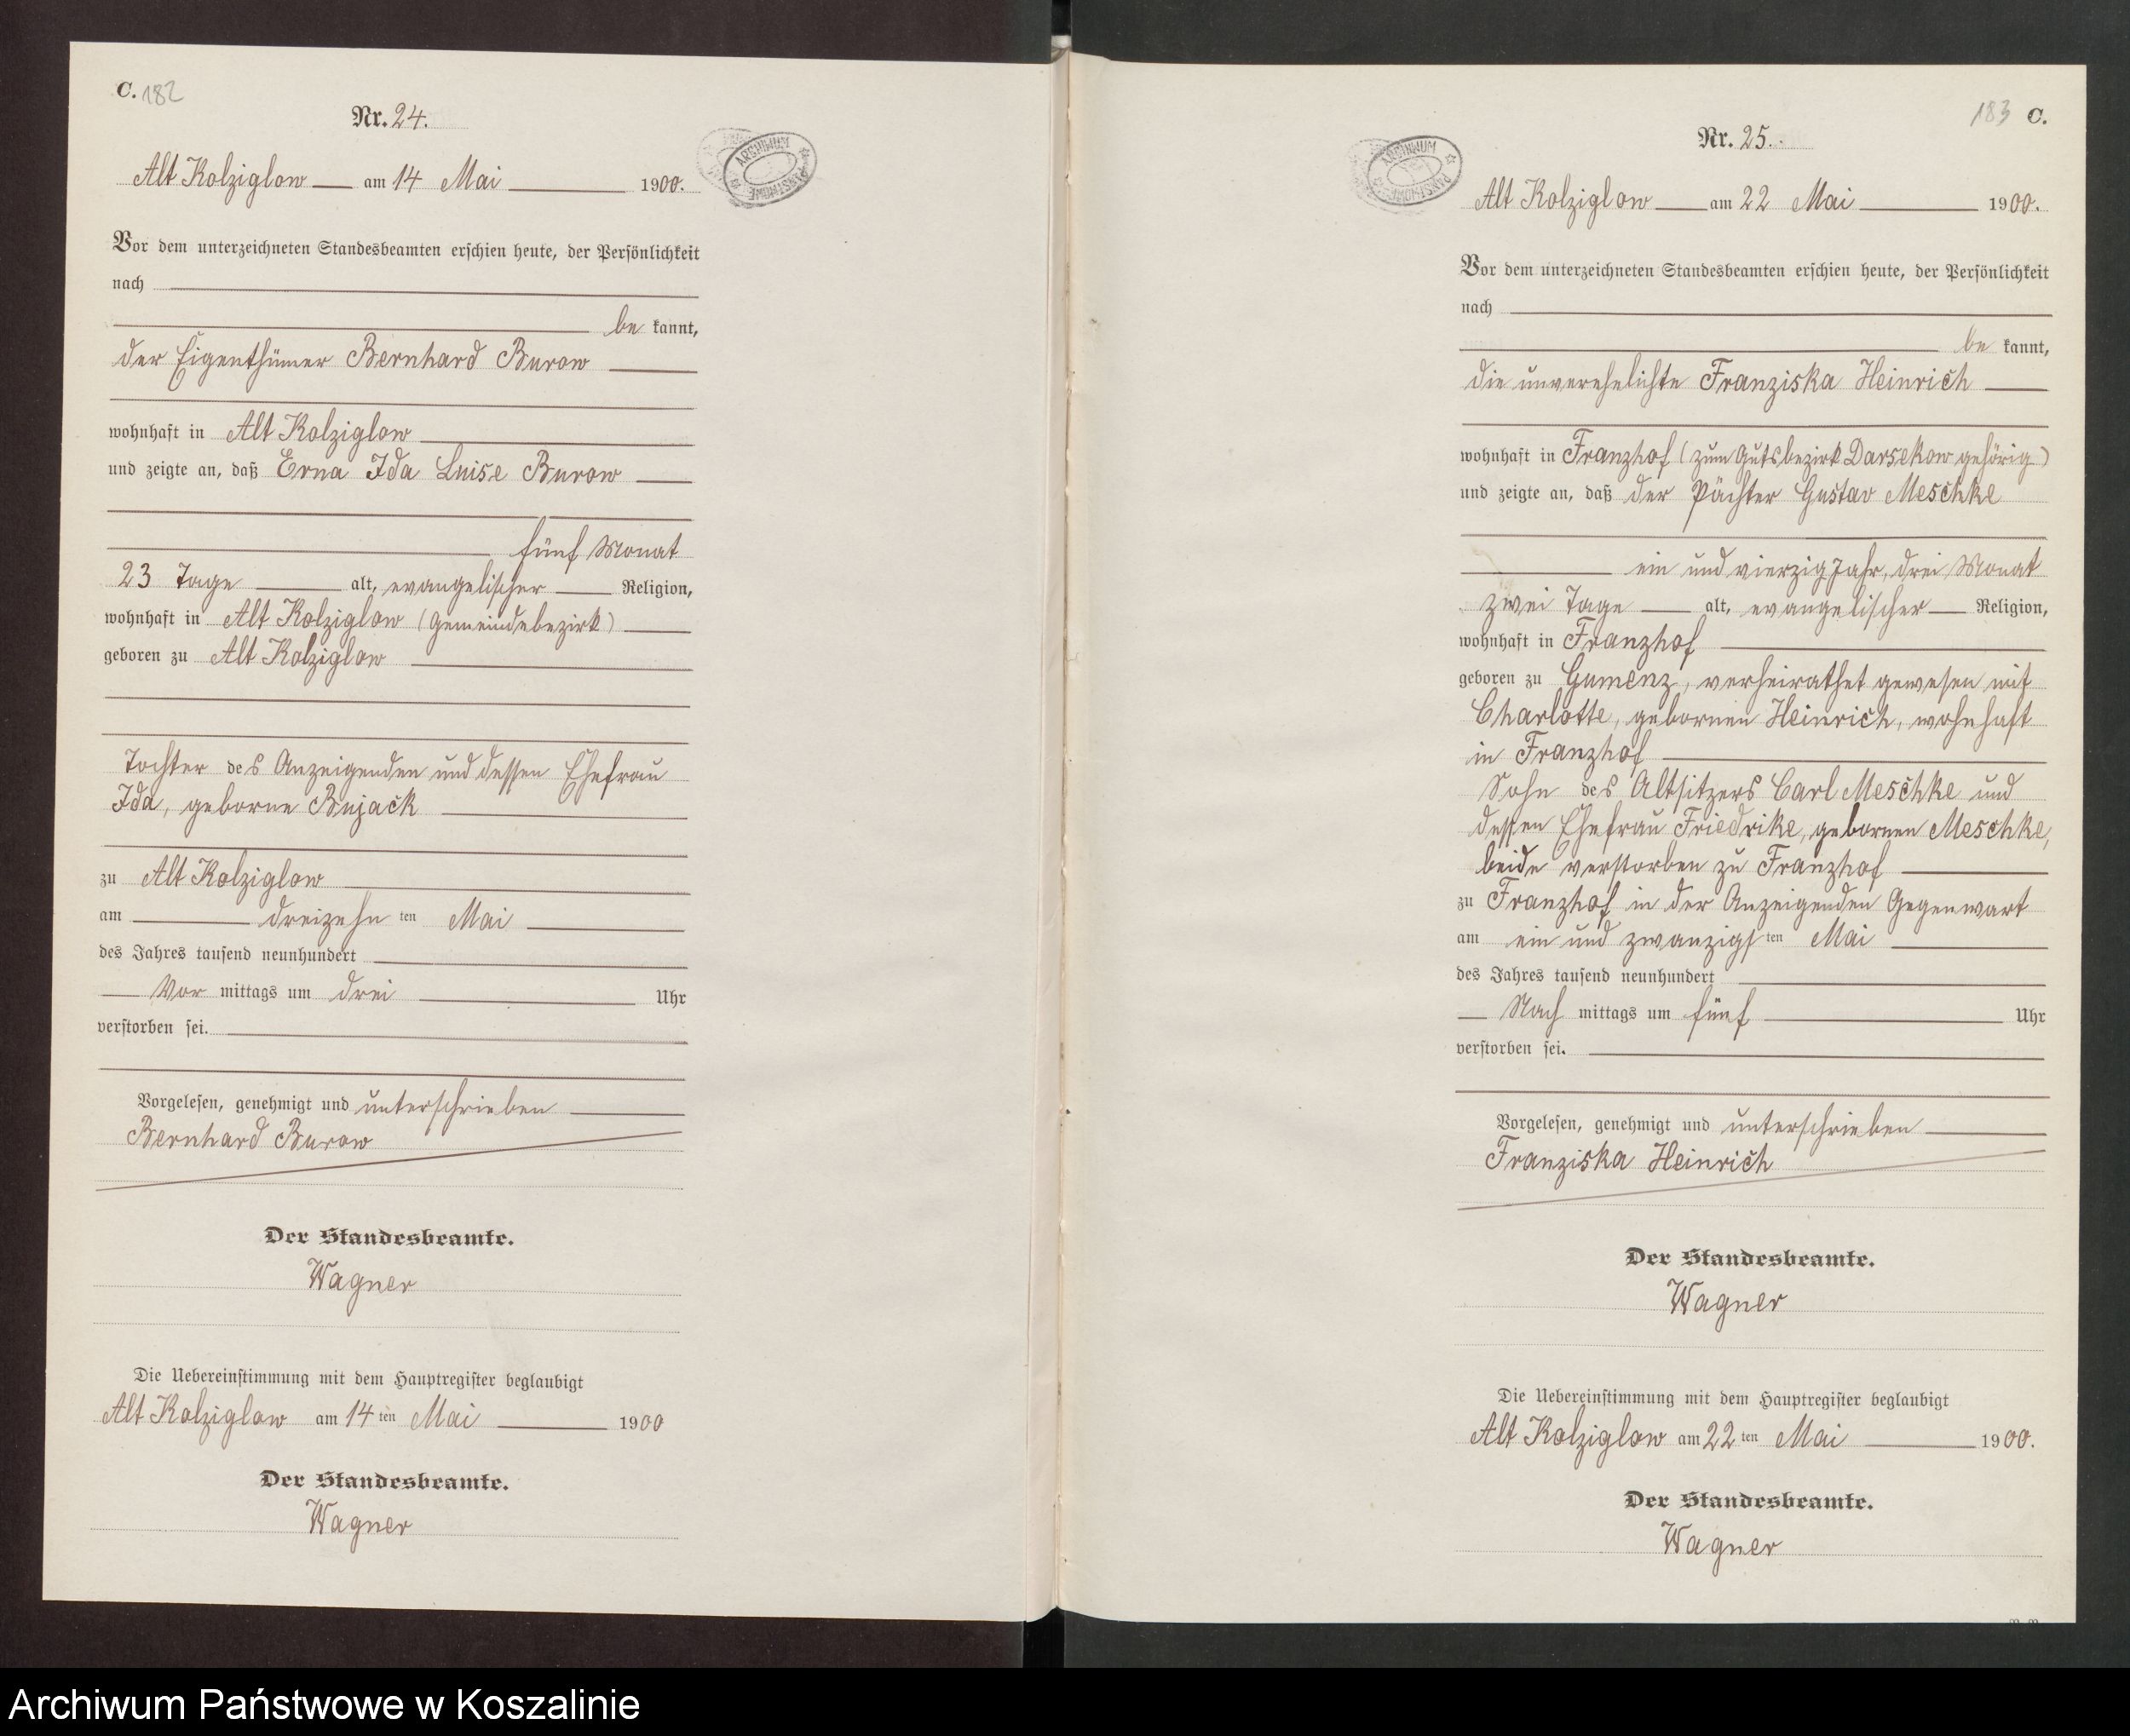 C. 182
Nr. 24.
Alt Kolziglow am 14 Mai 1900.
Vor dem unterzeichneten Standesbeamten erschien heute, der Persönlichkeit
nach
be kannt,
der Eigenthümer Bernhard Burow
wohnhaft in Alt Kolziglow
und zeigte an, daß Erna Ida Luise Burow
fünf Monat
23 Tage alt, evangelischer Religion,
wohnhaft in Alt Kolziglow (Gemeindebezirk)
geboren zu Alt Kolziglow
Tochter des Anzeigenden und dessen Ehefrau
Ida, geborne Bujack
zu Alt Kolziglow
am dreizehn ten Mai
des Jahres tausend neunhundert
Vor mittags um drei Uhr
verstorben sei.
Vorgelesen, genehmigt und unterschrieben
Bernhard Burow
Der Standesbeamte.
Wagner
Die Uebereinstimmung mit dem Hauptregister beglaubigt
Alt Kolziglow am 14 ten Mai 1900
Der Standesbeamte.
Wagner
ARCHIWUM PAŃSTWOWE
183 C.
Nr. 25.
Alt Kolziglow am 22 Mai 1900.
Vor dem unterzeichneten Standesbeamten erschien heute, der Persönlichkeit
nach
be kannt,
die unverehelichte Franziska Heinrich
wohnhaft in Franzhof (zum Gutsbezirk Darsekow gehörig)
und zeigte an, daß der Pächter Gustav Meschke
ein und vierzig Jahr, drei Monat
zwei Tage alt, evangelischer Religion,
wohnhaft in Franzhof
geboren zu Gumenz, verheirathet gewesen mit
Charlotte, gebornen Heinrich, wohnhaft
in Franzhof
Sohn des Altsitzers Carl Meschke und
dessen Ehefrau Friedrike, gebornen Meschke,
beide verstorben zu Franzhof
zu Franzhof in der Anzeigenden Gegenwart
am ein und zwanzigs ten Mai
des Jahres tausend neunhundert
Nach mittags um fünf Uhr
verstorben sei.
Vorgelesen, genehmigt und unterschrieben
Franziska Heinrich
Der Standesbeamte.
Wagner
Die Uebereinstimmung mit dem Hauptregister beglaubigt
Alt Kolziglow am 22 ten Mai 1900.
Der Standesbeamte.
Wagner
ARCHIWUM PAŃSTWOWE
Archiwum Państwowe w Koszalinie